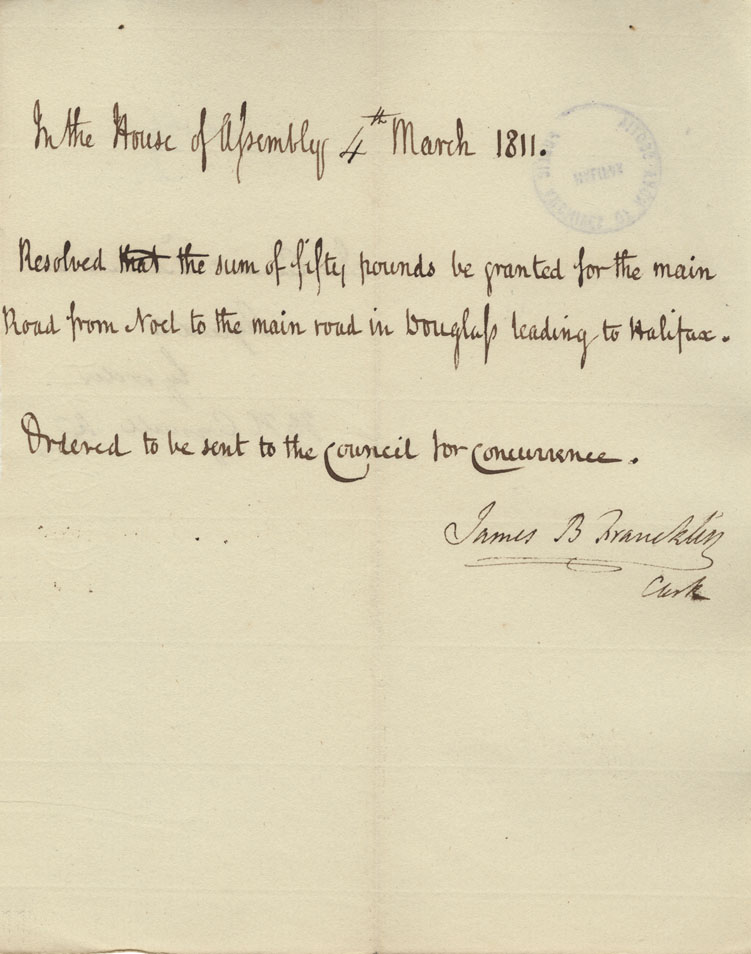 In the House of Assembly 4th March 1811.
Resolved that the sum of fifty pounds be granted for the main
Road from Noel to the main road in Douglass leading to Halifax.
Ordered to be sent to the Council for Concurrence.
James B Francklin
Clerk